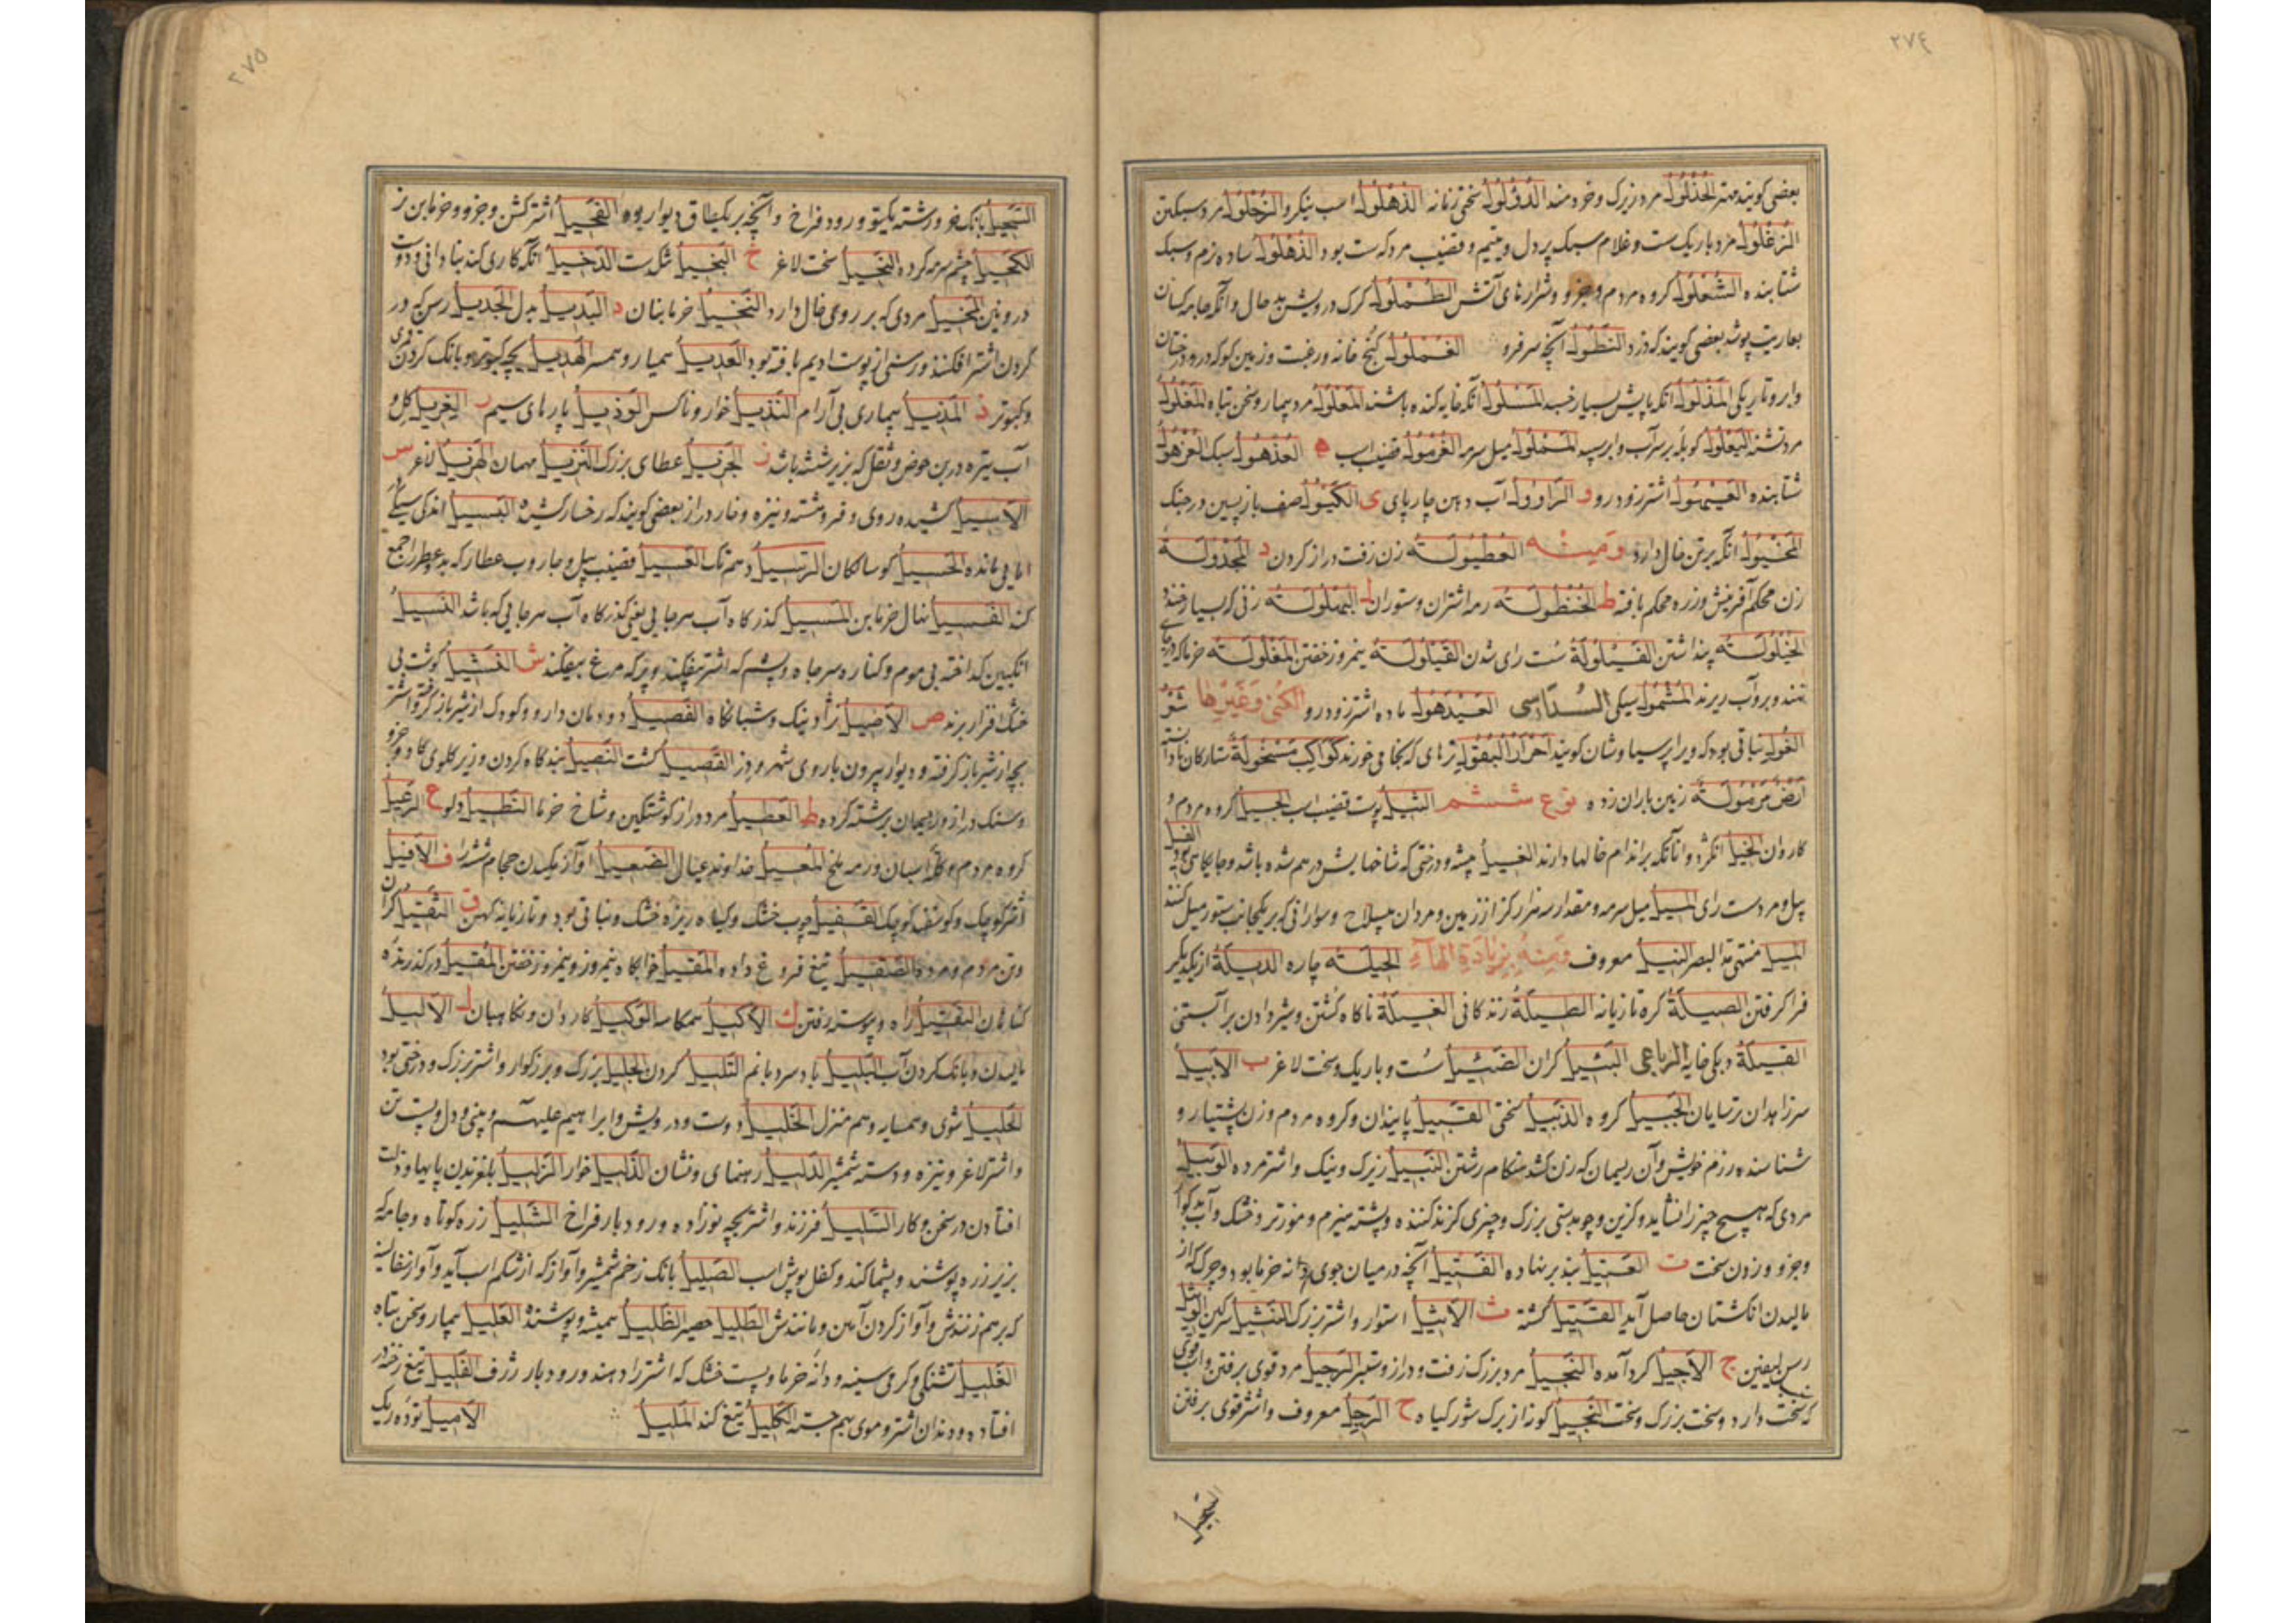 ٢٧٤
بعضی کویند مهتر الحُذْلُولُ مرد زیرک و خردمند الدُّؤْلُولُ سختی زمانه الذُّهْلُولُ اسب نیکرو الزُّحْلُولُ مرد سبکتن
الزُّغْلُولُ مرد باریک ست و غلام سبک پر دل و یتیم و قضیب مرد که ست بود الذُّهْلُولُ ساده نرم و سبک
شتابنده الشُّعْلُولُ کروه مردم و جزو و شرارهای آتش الطُّمْلُولُ کرک درویش بد حال و آنکه جامه کسان
بعاریت پوشد بعضی کویند که دزد النَّطُولُ آنچه سر فرو الغُمْلُولُ کنج خانه و رغبت و زمین کو که در و درختان
و ابر و تاریکی المَذْلُولُ آنکه پایش بسیار خسبد المَسْلُولُ آنکه خایه کنده باشند المَعْلُولُ مرد بیمار و سخن تباه المَغْلُولُ
مرد تشنه الیَعْلُولُ کوبله بر سر آب و ابر سپید المُلْمُولُ میل سرمه الغُرْمُولُ قضیب اسب ه العُذْهُولُ سبک العُزْهُولُ
شتابنده العَیْهُولُ اشتر زود رو د الرَّاوُولُ آب دهن چارپای ی الکَیُّولُ صف بازپسین در جنک
المَخْیُولُ آنکه بر تن خال دارد و منه العُطْبُولَةُ زن زفت دراز کردن د المَجْدُولَةُ
زن محکم آفرینش و زره محکم بافته ط الخُنْطُولَةُ رمه اشتران و ستوران ل البُهْلُولَةُ زنی که بسیار خندد
الخَیْلُولَةُ پنداشتن الفَیْلُولَةُ سُست رای شدن القَیْلُولَةُ نیمروز خفتن المَغْلُولَةُ خرما که در
نهند و بر و آب ریزند المَشْمُولُ سیکی السُّدَاسِی العَیْدَهُولُ ماده اشتر زود رو الکُنَی وَ غَیْرِهَا شَعْرُ
الغُولِ نباتی بود که ویرا پرسیاوشان کویند اَحْرَارُ البُقُولِ ترهای که بخامی خورند کَوَاکِبُ مَسْخُولَةٌ ستارکان نادانسته
اَرْضٌ مَرْهُولَةٌ زمین باران زده نوع ششم الثِّیلُ پوست قضیب اسب الجِیلُ کروه مردم و
کاروان الخِیلُ انکژد و آنانکه بر اندام خالها دارند الغِیلُ بیشه و درختی که شاخهایش در هم شده باشد و جایکاه شیر بود الفِیلُ
پیل و مرد ست رای المِیلُ میل سرمه و مقدار سه هزار کز از زمین و مردان بیسلاح و سوارانی که بر یکجانب ستور میل کنند
المِیلُ منتهی مد البصر النِّیلُ معروف وَ مِنْهُ بِزِیَادَةِ الْهَاءِ الحِیلَةُ چاره الدِّیلَةُ از یکدیکر
فرا کرفتن الصِّیلَةُ کره تازیانه الطِّیلَةُ زندکانی الغِیلَةُ ناکاه کُشتن و شیر دادن بر آبستنی
القِیلَةُ دبکی خایه الرُّبَاعِی البَئِیلُ کران الضَّئِیلُ سُست و باریک و سخت لاغر ب الاَبِیلُ
سر زاهدان ترسایان الجَبِیلُ کروه الذَّبِیلُ سختی القَبِیلُ پایندان و کروه مردم و زن پشتیار و
شناسنده رزم خویش و آن ریسمان که زن کشد هنکام رشتن النَّبِیلُ زیرک و نیک و اشتر مرده الوَبِیلُ
مردی که هیچ چیز را نشاید و کزین و چوبدستی بزرک و چیزی کزند کننده و پشته هیزم و موز تر و خشک و آب ناکوار
و جزو و زدن سخت ت العَتِیلُ بند بر نهاده الفَتِیلُ آنچه در میان جوی دانه خرما بود و چرک که از
مالیدن انکشتان حاصل آید القَتِیلُ کشته ث الاَثِیلُ استوار و اشتر بزرک النَّثِیلُ سرکین الوَثِیلُ
رسن لیفین ج الاَجِیلُ کرد آمده البَجِیلُ مرد بزرک زفت و دراز و ستبر الرَّجِیلُ مرد قوی بر رفتن و اسب قوی
که سخت دارد و سخت بزرک و سخت النَّجِیلُ کوز از برک شور کیاه ح الرَّحِیلُ معروف و اشتر قوی بر رفتن
السَّحِیلُ
٢٧٥
السَّحِیلُ بانک خر و رشته یکتو و رود فراخ و آنچه بر یکطاق دیوار بود الفَحِیلُ اشتر کشن و جزو و خرمابن نر
الکَحِیلُ چشم سرمه کرده النَّحِیلُ سخت لاغر خ البَخِیلُ تنک دست الدَّخِیلُ آنکه کاری کند بنادانی و دوست
درونین المَخِیلُ مردی که بر روی خال دارد النَّخِیلُ خرمابنان د البَدِیلُ بدل الجَدِیلُ رسن که در
کردن اشتر افکنند و رسنی از پوست ادیم بافته بود العَدِیلُ همیار و همسر الهَدِیلُ بچه کبوتر و بانک کردن قمری
و کبوتر ذ المَذِیلُ بیماری بی آرام النَّذِیلُ خوار و ناکس الوَذِیلُ پارهای سیم ر الغِرْیَلُ کل و
آب تیره در بن حوض و ثقل که بزیر نشسته باشد ز الجَزِیلُ عطای بزرک النَّزِیلُ مهمان الهَزِیلُ لاغر س
الاَسِیلُ کشیده روی و فروهشته و نیزه و خار دراز بعضی کویند که رخسار کشیده البَسِیلُ اندکی سیکی
اما یی مانده الحَسِیلُ کوسالکان الرَّسِیلُ هم تک العَسِیلُ قضیب پیل و جاروب عطار که بدو عطر را جمع
کند الفَسِیلُ نهال خرمابن المَسِیلُ کذرکاه آب هر جایی یعنی کذرکاه آب هر جایی که باشد النَّسِیلُ
انکبین کداخته بی موم و کناره سر چاه و پشم که اشتر بیفکند و پر که مرغ بیفکند ش النَّشِیلُ کوشت بی
خشک افزار پزند ص الاَصِیلُ نژاد نیک و شبانکاه الفَصِیلُ دودمان دار و کودک از شیر باز کرفته و اشتر
بچه از شیر باز کرفته و دیوار بیرون باروی شهر و دز القَصِیلُ کشت النَّصِیلُ بندکاه کردن و زیر کلوی کاو و جزو
و سنک دراز و ریسمان رشته کرده ط العَطِیلُ مرد دراز کوشتکین و شاخ خرما النَّطِیلُ دلو ع الرَّعِیلُ
کروه مردم و کله اسبان و رمه ملخ المُعِیلُ خداوند عیال الضَّعِیلُ آواز مکیدن حجام شتر را ف الاَفِیلُ
اشتر کوچک و کوسفند کوچک القَفِیلُ چوب خشک و کیاه ریزه خشک و نباتی بود و تازیانه کهن ق الثَّقِیلُ کران
و تن مردم و مرده الصَّقِیلُ تیغ فروغ داده المَقِیلُ خوابکاه نیمروز و نیمروز خفتن المُقِیلُ در کذرنده
کناهان النَّقِیلُ راه و پیوسته رفتن ك الاَکِیلُ همکاسه الوَکِیلُ کاروان و نکاهبان ل الاَلِیلُ
نالیدن و بانک کردن آب البَلِیلُ باد سرد با نم التَّلِیلُ کردن الجَلِیلُ بزرک و بزرکوار و اشتر بزرک و درختی بود
الحَلِیلُ شوی و همسایه و هم منزل الخَلِیلُ دوست و درویش و ابراهیم علیه و بینی و دل و پست تن
و اشتر لاغر و نیزه و دسته شمشیر الدَّلِیلُ رهنمای و نشان الذَّلِیلُ خوار الزَّلِیلُ بلغزیدن پایها و ذلت
افتادن در سخن و کار السَّلِیلُ فرزند و اشتر بچه نوزاده و رودبار فراخ الشَّلِیلُ زره کوتاه و جامه که
بزیر زره پوشند و پشماکند و کفل پوش اسب الصَّلِیلُ بانک زخم شمشیر و آواز که از شکم اسب آید و آواز سفالینه
که بر هم زنندش و آواز کردن آهن و مانندش الطَّلِیلُ حصیر الظَّلِیلُ همیشه و پوشنده العَلِیلُ بیمار و سخن تباه
الغَلِیلُ تشنکی و کرمی سینه و دانه خرما و پست خشک که اشتر را دهند و رودبار ژرف الفَلِیلُ تیغ رخنه در
افتاده و دندان اشتر و موی بهم جسته الکَلِیلُ تیغ کند المَلِیلُ الاَمِیلُ توده ریک